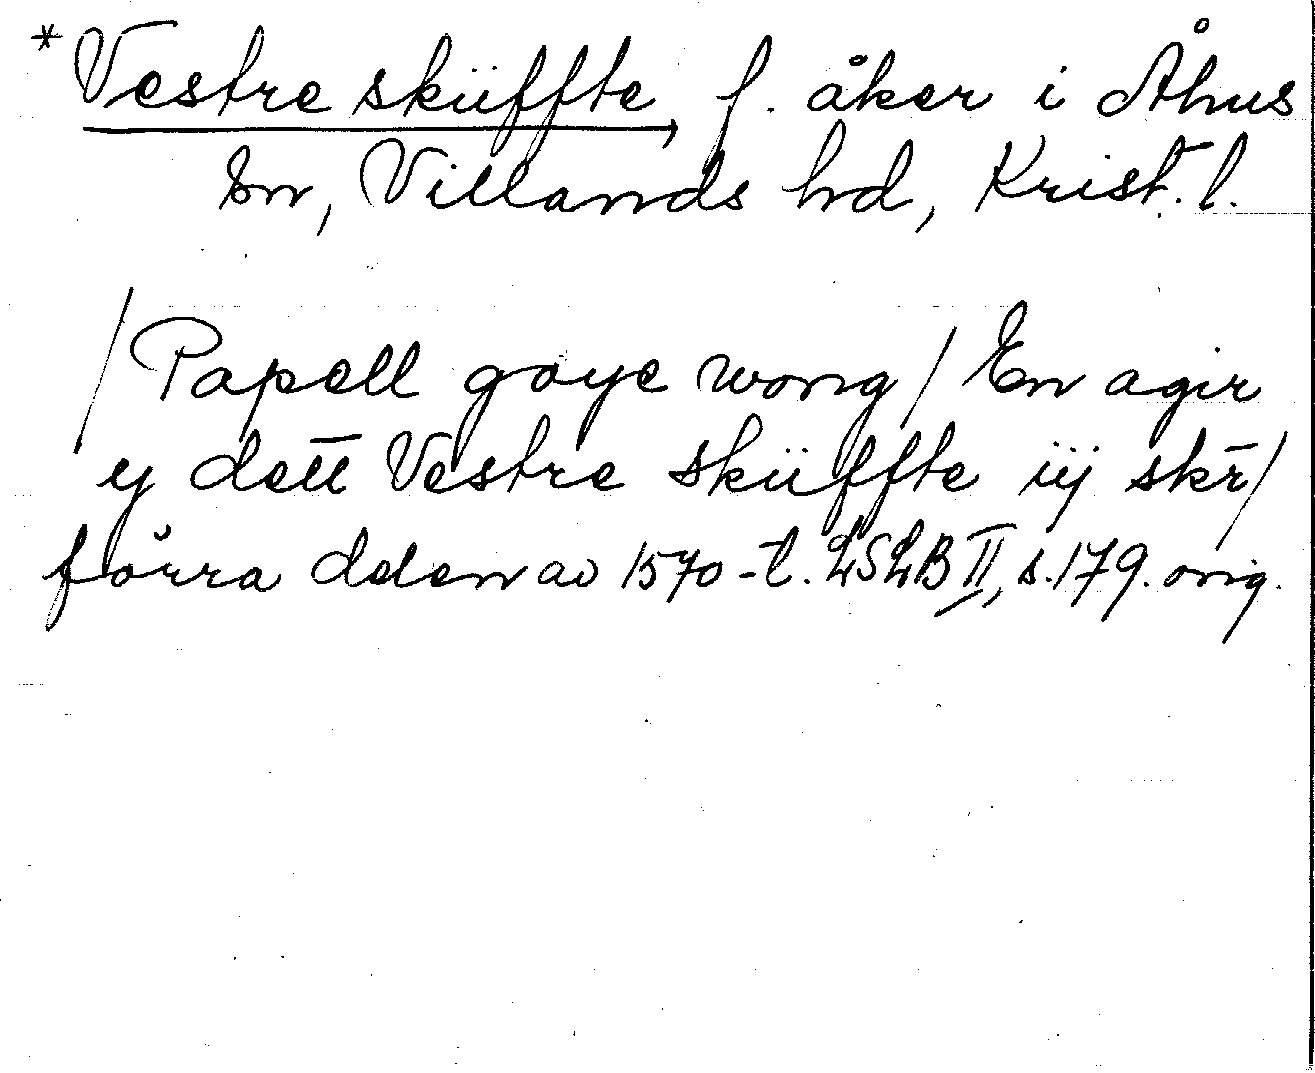 *Vestre sküffte f. åker i Åhus
sn, Villands hd, Krist. l.
/Papell gaye wong/ En agir
y dett Vestre sküffte iij skr̄/
förra delen av 1570-t. LSLB II, s. 179. orig.